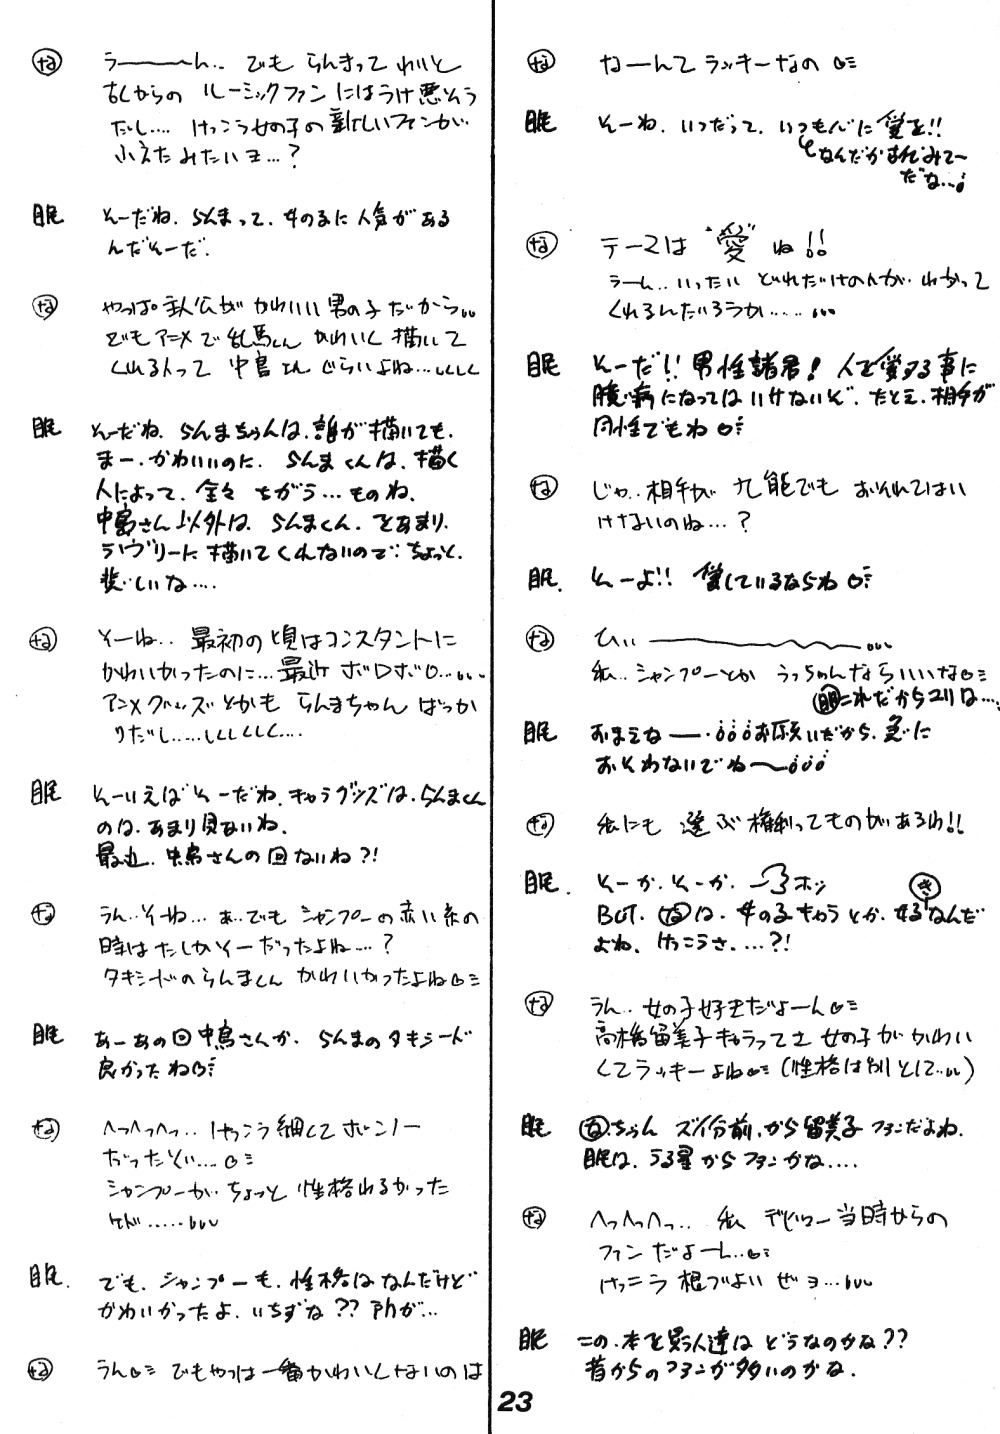 な うーーーん… でも らんまって わりと
古くからの ルーミックファン にはうけ悪そう
だし…. けっこう女の子の新しいファンが
ふえたみたいヨ…?
眠 そーだね. らんまって. 女の子に人気がある
んだそーだ.
な やっぱ主人公が かわいい男の子だから…
でもアニメで乱馬くん かわいく描いて
くれる人って 中島さんぐらいよね…しくしく
眠 そーだね. らんまちゃんは. 誰が描いても.
まー. かわいいのに. らんまくんは. 描く
人によって. 全々 ちがう…ものね.
中島さん以外は. らんまくん. をあまり.
ラヴリーに描いてくれないので… ちょっと.
悲しいな….
な そーね.. 最初の頃はコンスタントに
かわいかったのに…最近ボロボロ…...
アニメグッズとかも らんまちゃん ばっか
りだし…..しくしくしく….
眠 そーいえば そーだね. キャラグッズは. らんまくん
のは. あまり見ないね.
最近. 中島さんの回ないね?!
な うん..そーね… あ..でも シャンプーの赤い糸の
時はたしかそーだったよね…?
タキシードのらんまくん かわいかったよね♡ミ
眠 あーあの回中島さんか. らんまのタキシード
良かったね♡ミ
な へっへっへっ.. けっこう細くてボンノー
だったぞい….♡ミ
シャンプーが.ちょっと 性格わるかった
ケド……
眠. でも. シャンプーも. 性格はなんだけど
かわいかったよ. いちずな?? 所が…
な うん♡ミ でもやっぱ一番かわいくないのは
な なーんてラッキーなの♡ミ
眠 そーね. いつだって. いつも心に愛を!!
なんだかまんがみてー
だな…
な テーマは “愛” ね!!
うーん.. いったい どれだけの人が. わかって
くれるんだろうか……
眠 そーだ!! 男性諸君! 人を愛する事に
臆病になってはいけないぞ. たとえ. 相手が
同性でもね♡ミ
な じゃ..相手が 九能でも おそれてはい
けないのね…?
眠. そーよ!! 愛しているならね♡ミ
な ひぃーーーーー…
私.. シャンプーとか うっちゃんならいいな♡ミ
(眠これだからユリは….
眠 おまえなーー. お願いだから. 急に
おそわないでね〜
な 私にも 選ぶ権利ってものがあるわ!!
眠. そーか. そーか. ホッ
BUT. なは. 女の子キャラとか. 好きなんだ
よね. けっこうさ. …?!
な うん.. 女の子好きだよーん♡ミ
高橋留美子キャラってさ 女の子がかわい
くてラッキーよね♡ミ (性格は別として…)
眠 な.ちゃん ズイ分前.から留美子ファンだよね.
眠は. うる星からファンかな….
な へっへっへっ.. 私 デビュー当時からの
ファンだよーん..♡ミ
けっこう根づよいぜヨ…
眠 この.本を買う人達はどうなのかな??
昔からのファンが多いのかな.
23